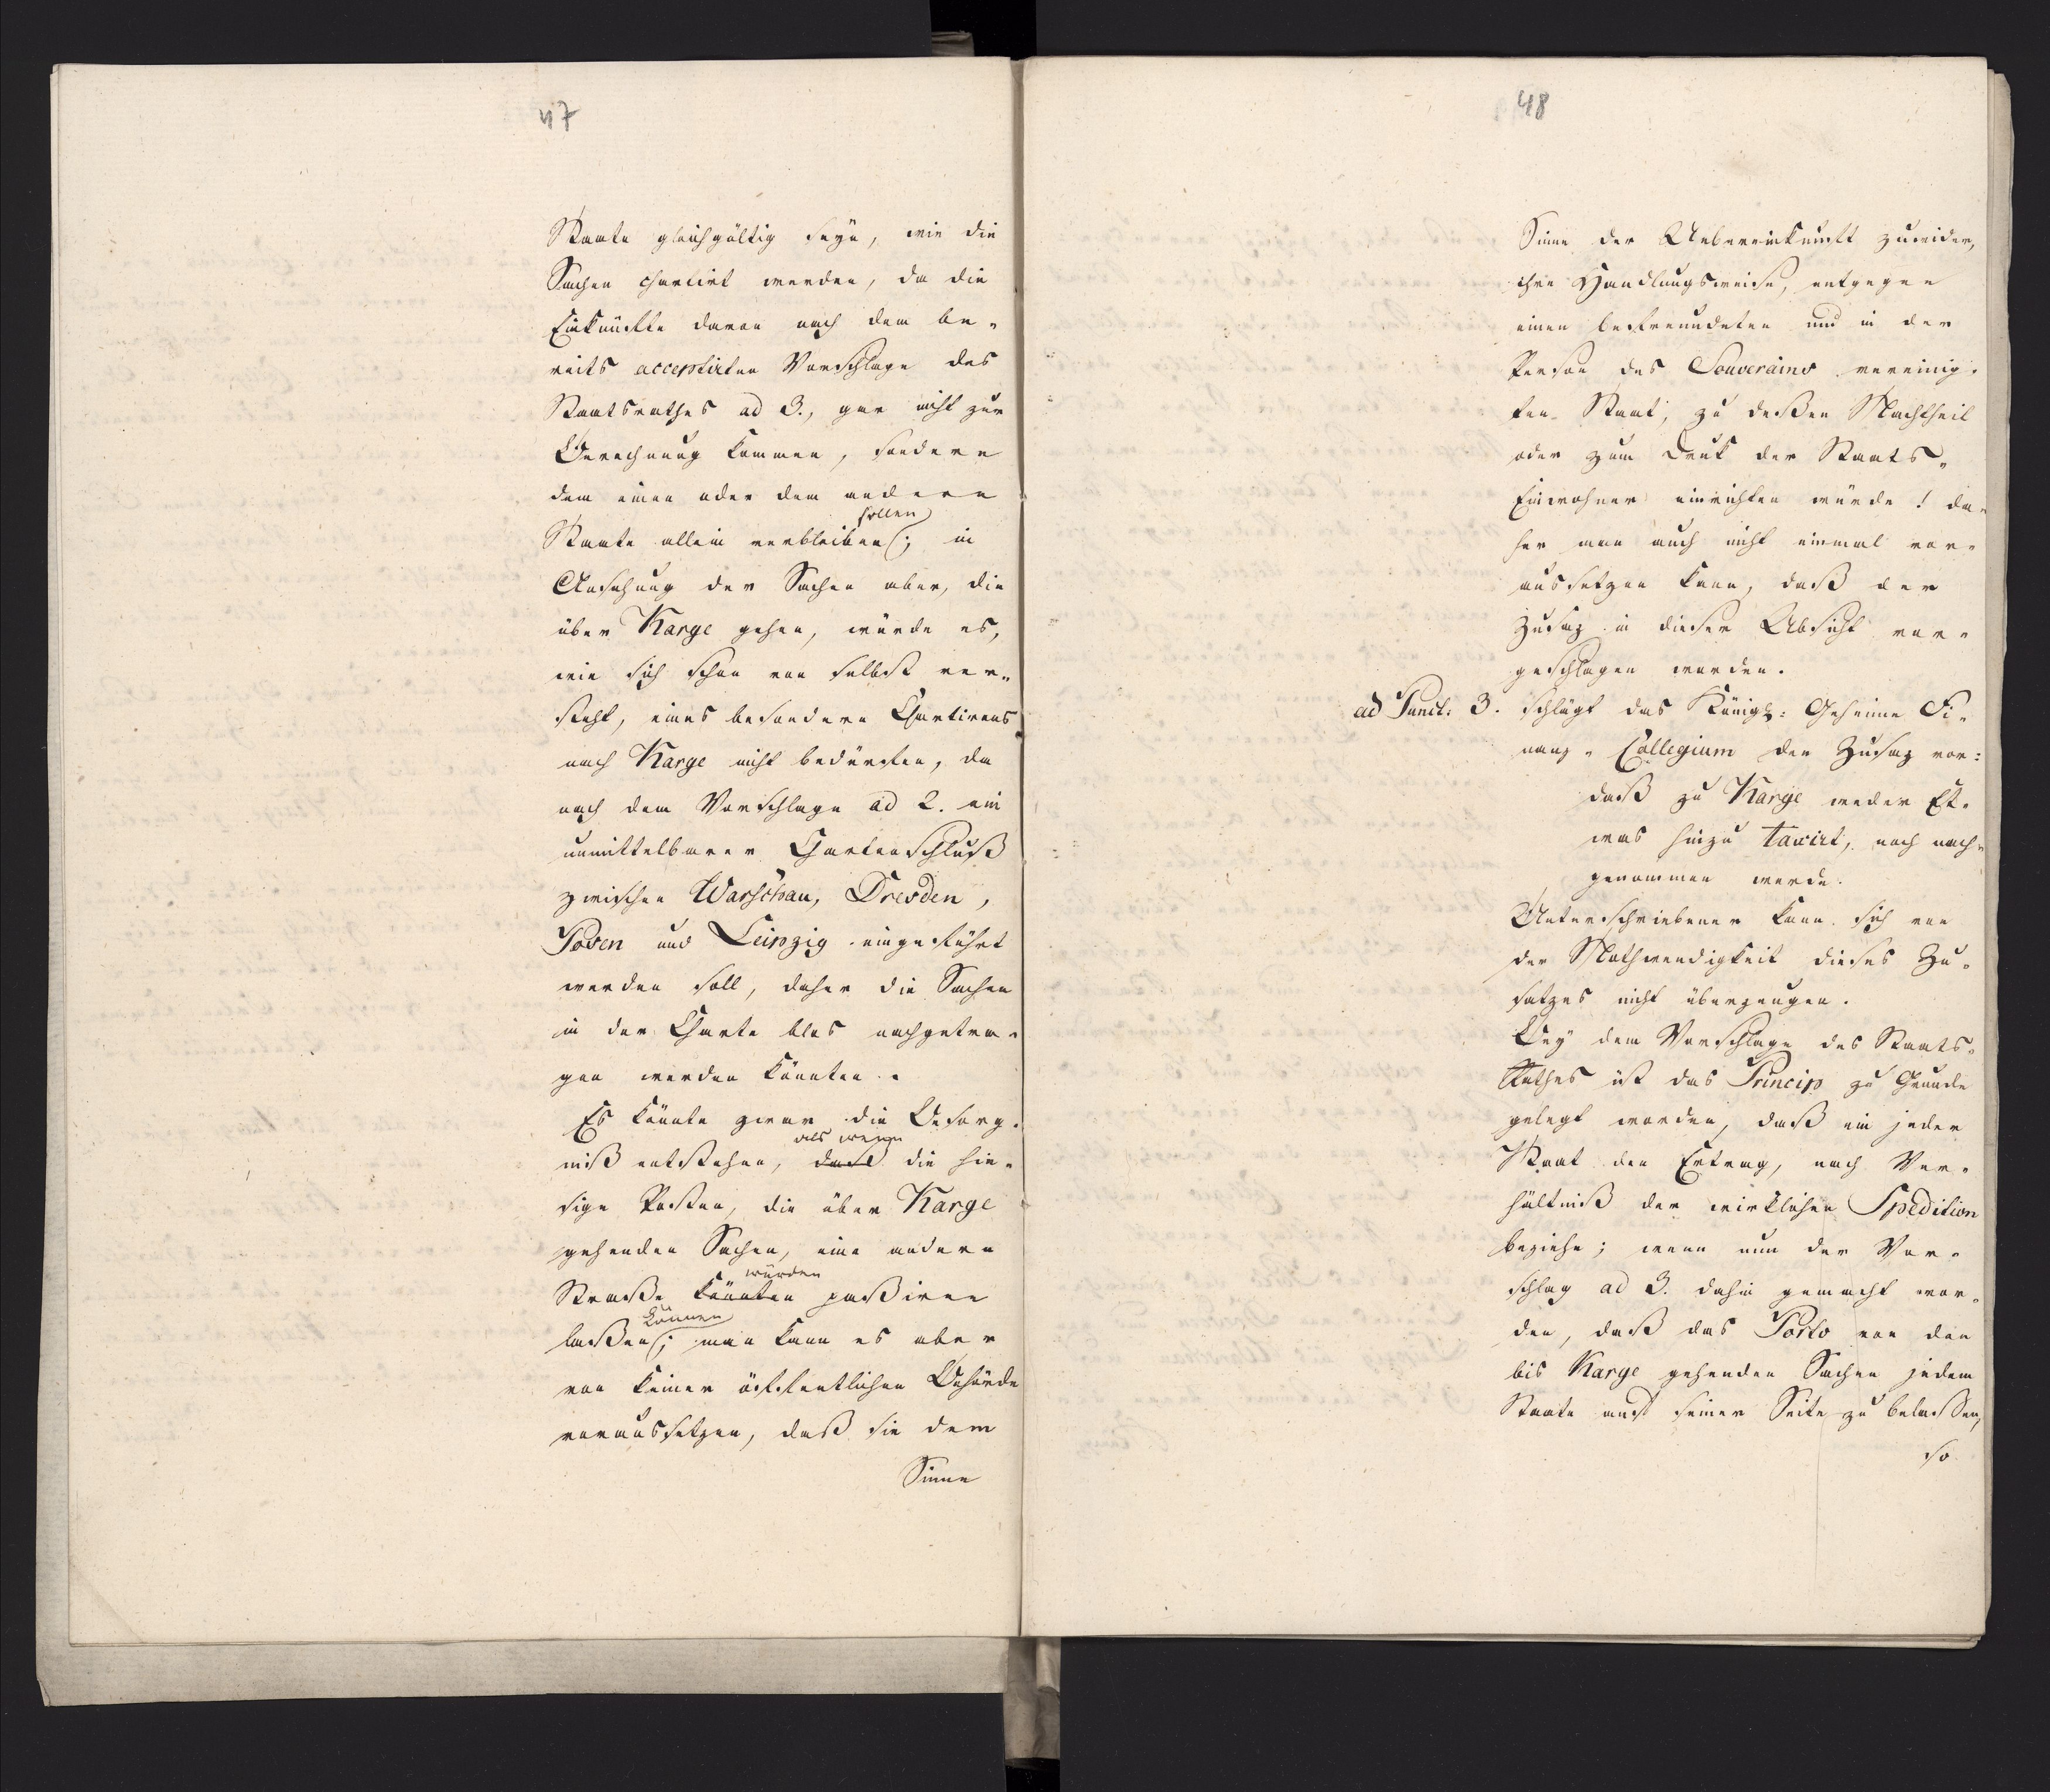 47
Staate gleichgültig seyn, wie die
Sachen chartirt werden, da die
Einkünfte davon nach dem be-
reits acceptirten Vorschlage des
Staatsrathes ad 3., gar nicht zur
Berechnung kommen, sondern
dem einen oder dem andern
sollen
Staate allein verbleiben; in
Ansehung der Sachen aber, die
über Karge gehen, würde es,
wie sich schon von selbst ver-
steht, eines besondern Chartirens
nach Karge nicht bedürfen, da
nach dem Vorschlage ad 2. ein
unmittelbarer Chartenschluß
zwischen Warschau, Dresden,
Posen und Leipzig eingeführt
werden soll, daher die Sachen
in der Charte blos nachgetra-
gen werden könnten.
Es könnte zwar die Besorg-
als wenn
niß entstehen, daß die hie-
sige Posten, die über Karge
gehenden Sachen, eine andere
würden
Straße könnten paßiren
können
laßen; man kann es aber
von keiner öffentlichen Behörde
voraussetzen, daß sie dem
Sinne
48
Sinne der Uebereinkunft zuwider,
ihre Handlungsweise, entgegen
einen befreundeten und in der
Person des Souverains vereinig-
ten Staat, zu deßen Nachtheil
oder zum Druk der Staats-
Einwohner einrichten würde! da-
her man auch nicht einmal vor-
aussetzen kann, daß der
Zusaz in dieser Absicht vor-
geschlagen worden.
ad Punct: 3. schlägt das Königl: Geheime Fi-
nanz-Collegium den Zusaz vor:
daß zu Karge weder Et-
was hinzu taxirt, noch nach-
genommen werde.
Unterschriebener kann sich von
der Nothwendigkeit dieses Zu-
satzes nicht überzeugen.
Bey dem Vorschlage des Staats-
Rathes ist das Princip zu Grunde
gelegt worden, daß ein jeder
Staat den Ertrag, nach Ver-
hältniß der wirklichen Spedition
beziehe; wenn nun der Vor-
schlag ad 3. dahin gemacht wor-
den, daß das Porto von den
bis Karge gehenden Sachen jedem
Staate auf seiner Seite zu belaßen,
so